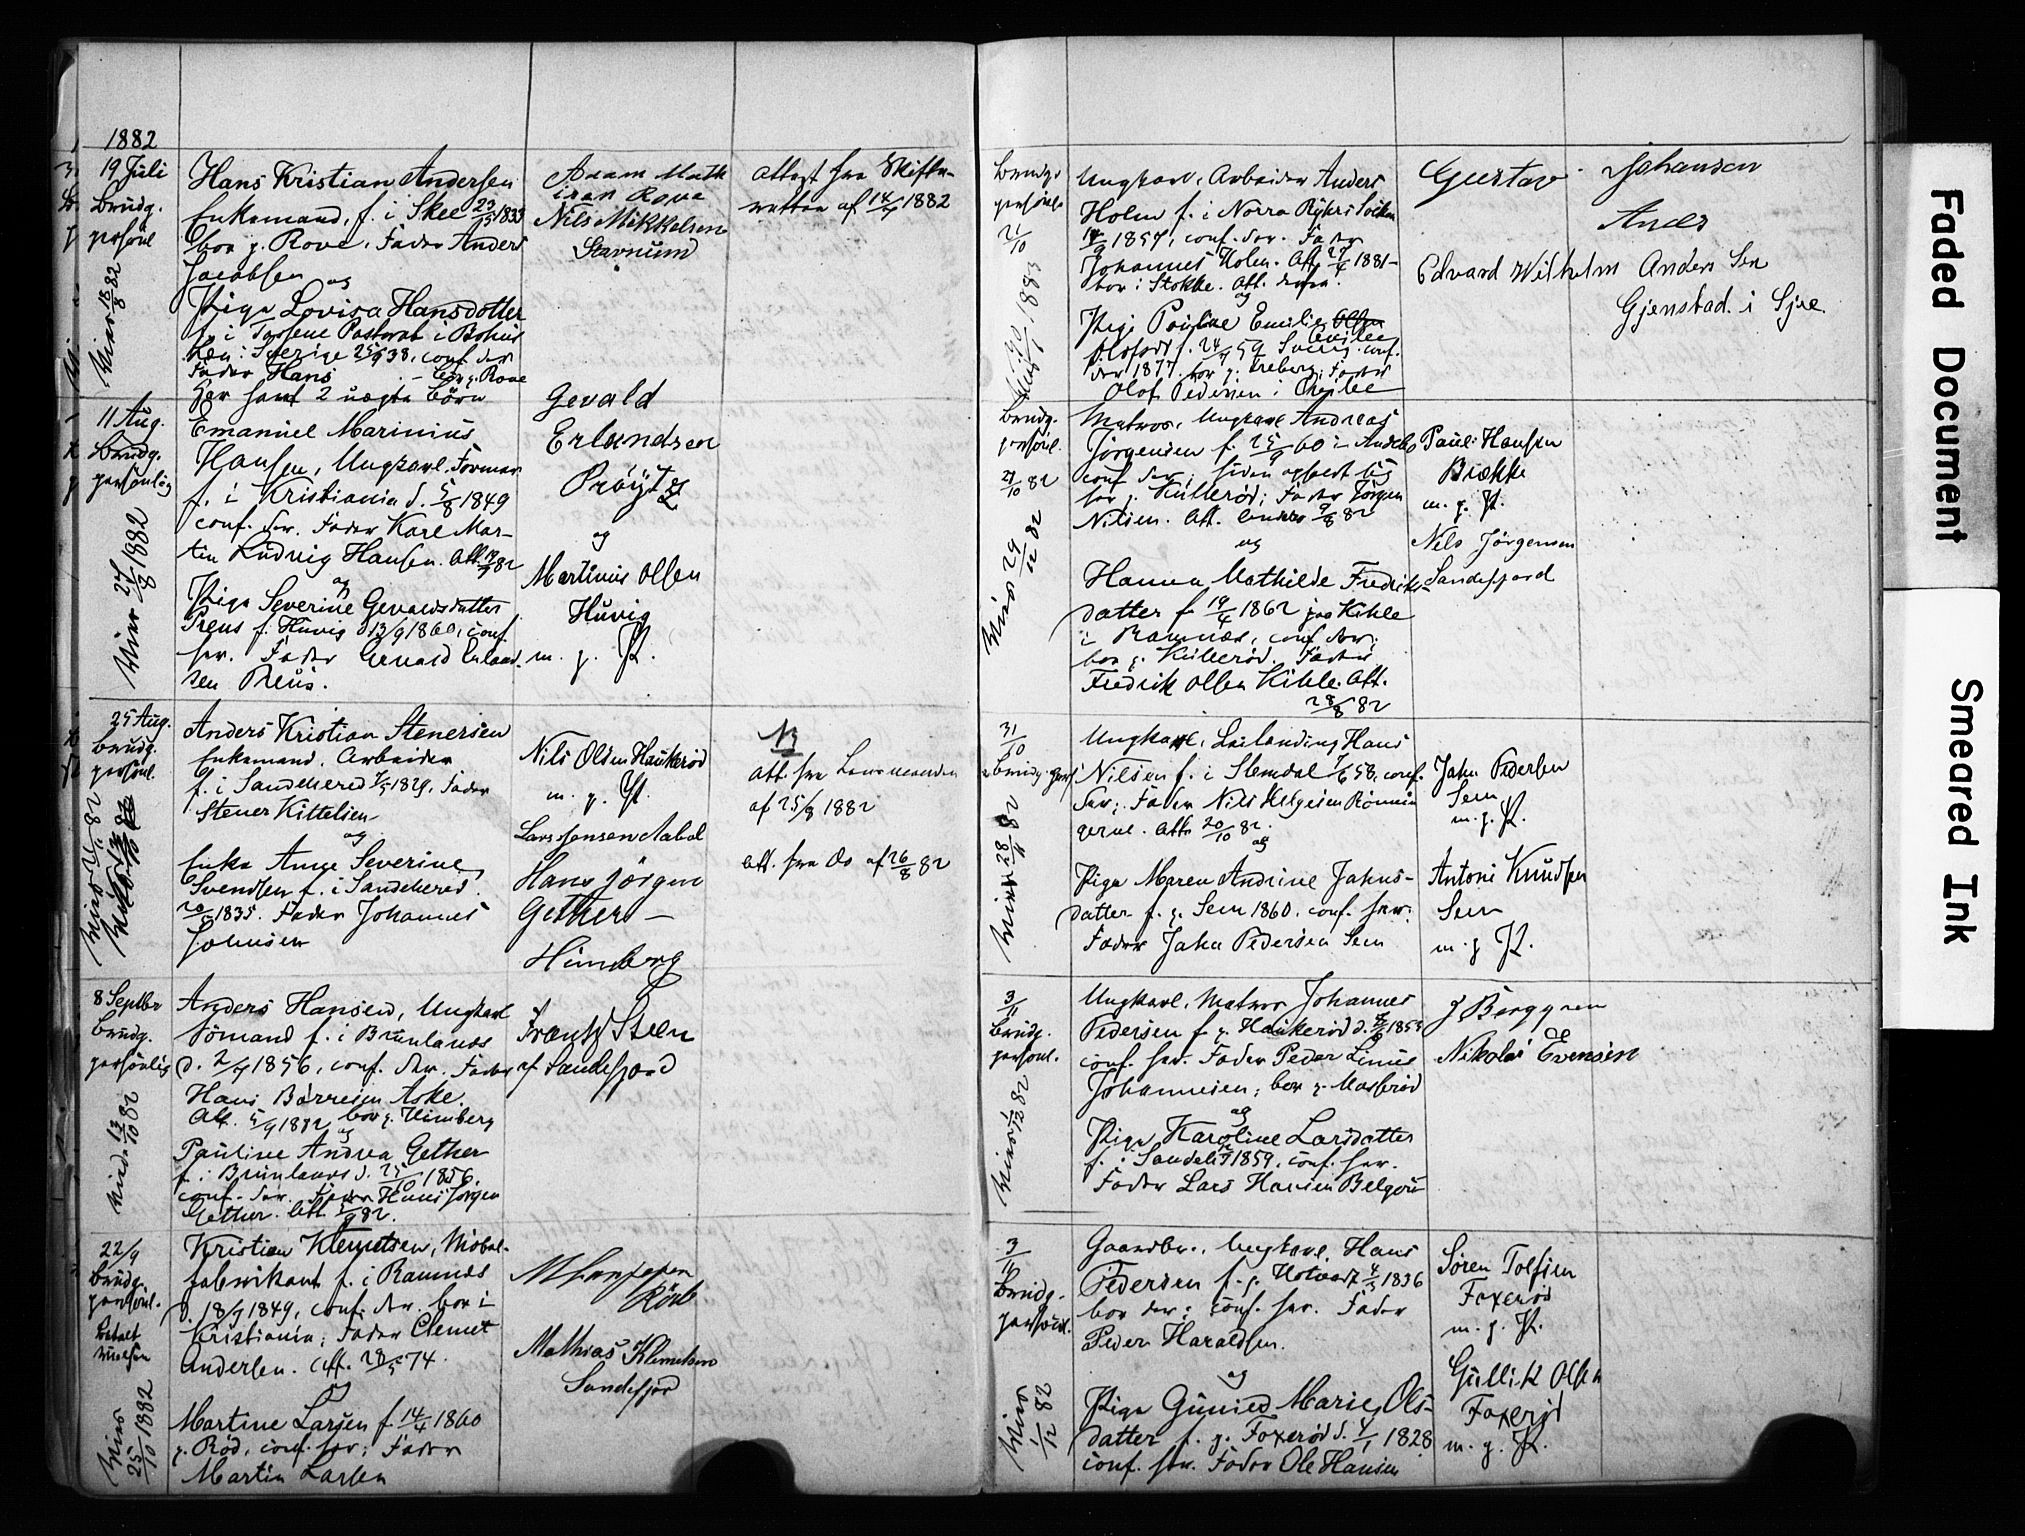 1882
19 Juli
Brudg.
persönl
Viet 18/8 82
Hans Kristian Andersen
Enkemand, f. i Skee 23/ 1833
bor p. Rove. Fader Anders
Jacobsen
og
Pige Lovisa Hansdotter
f. i Pastorat i Bohus
Län i Sverige 38, conf. der
Fader Hans bor p. Rove
Her samt 2 uægte börn
Rove
Nils Mikkelsen
Stavnum
Attest fra Skifte-
retten af 14/ 1882
11 Aug.
Brudg.
persönlig
Viet 27/8 1882
Emanuel Marinius
Hansen, Ungkarl. Former
f. i Kristiania d. 5/8 1849
conf. der. Fader Karl Mar-
tin Ludvig Hansen. Att. 82
og
Pige Severine Gevaldsdatter
Preus f. Huvig d 13/9 1860, conf.
her. Fader Gevald Erland-
sen Preus.
Gevald
Erlandsen
Pröyts
og
Martinius Olsen
Huvig
m. p. P.
25 Aug.
Brudg.
persönl.
Anders Kristian Stenersen
Enkemand, Arbeider
f. i Sandeherred 1829, Fader
Stener Kittelsen
og
Enke Anne Severine
Svendsen f. i Sandeherred
1835. Fader Johannes
Johnsen
Nils Olsen Haukeröd
m. p. P.
Lars Jensen Aabol
Hans Jörgen
Gether –
Himberg
NB
Att. fra Lensmanden
af 25/8 1882
Att. fra do af 26/8 82
8 Septbr
Brudg.
persönlig
Viet 13/10 82
Anders Hansen, Ungkarl
Sömand f. i Brunlanes
d. 2/ 1856, conf. der. Fader
Hans Börresen Aske.
Att. 5/9 1882 bor p. Himberg
og
Pauline Andrea Gether
f. i Brunlanes d. 25/10 1856,
conf. der. Fader Hans Jörgen
Gether. Att. 5/9 82.
Frantz Steen
af Sandefjord
22/9
Brudg.
persönl.
Betalt
Vielsen
Viet 25/10 1882
Kristian Klemetsen, Möbel-
fabrikant f. i Ramnes
d. 18/ 1849, conf. der. bor i
Kristiania; Fader Clemet
Andersen. Att. 28/5 74.
og
Martine Larsen f. 14/4 1860
p. Röd, conf. her; Fader
Martin Larsen
Mathias Klemetsen
Sandefjord
Brudg.
persönl.
21/10
Viet 1883
Ungkarl, Arbeider Anders
Holm f. i Norra Socken
1857, conf. der. Fader
Johannes Holm. Att. 27/4 1881 –
bor i Stokke. Att. derfra.
og
Pige Pauline Emilie
24/ 59 conf.
der 1877. bor p. Fader
Olof Pedersen i
Gustav Johansen
Anders
Edvard Wilhelm Anders Sen
Gjenstad i Sjue
Brudg.
persönl.
21/10 82
Viet 29/12 82
Matros, Ungkarl Andreas
Jörgensen f. 25/9 60 i Andebo
conf der; siden opholdt sig
her p. Kulleröd; Fader Jörgen
Nilsen. Att. Andebo 9/8 82
og
Hanna Mathilde Fredriks-
datter f. 19/4 1862 paa Kihle
i Ramnæs, conf der;
bor p. Kullerød. Fader
Fredrik Olsen Kihle. Att.
28/8 82
Paul Hansen
Brekke
m. p. P.
Nils Jörgensen
Sandefjord
31/10
Brudg. pers
Viet 28/11 82
Ungkarl, Leilænding Hans
Nilsen f. i Slemdal 58, conf.
der; Fader Nils Helgesen Rönnin
gerne. Att. 20/10 82.
og
Pige Maren Andrine Jahns-
datter f. p. Sem 1860, conf. her.
Fader Jahn Pedersen Sem
Jahn Pedersen
Sem
m. p. P.
Antoni Knudsen
Sem
m. p P.
3/11
Brudg.
persönl.
Viet 82
Ungkarl, Matros Johannes
Pedersen f. p. Haukeröd d. 1853
conf. her. Fader Peder Linus
Johannesen; bor p. Mosseröd
og
Pige Karoline Larsdatter
f. i Sandeh 1859, conf. her.
Fader Lars Hansen
J Berggren
Nikolai Evensen
3/11
Brudg.
persönl.
Viet 1/12 82
Gaardbr., Ungkarl Hans
Pedersen f. p. 1836
bor der; conf. her. Fader
Peder Haraldsen.
og
Pige Gunild Marie Ols-
datter f. p. Foxeröd d. 1/1 1828
conf. her. Fader Ole Hansen
Sören Tolfsen
Foxeröd
m. p. P.
Gullik Olsen
Foxeröd
m. p. P.
Faded Document
Smeared Ink